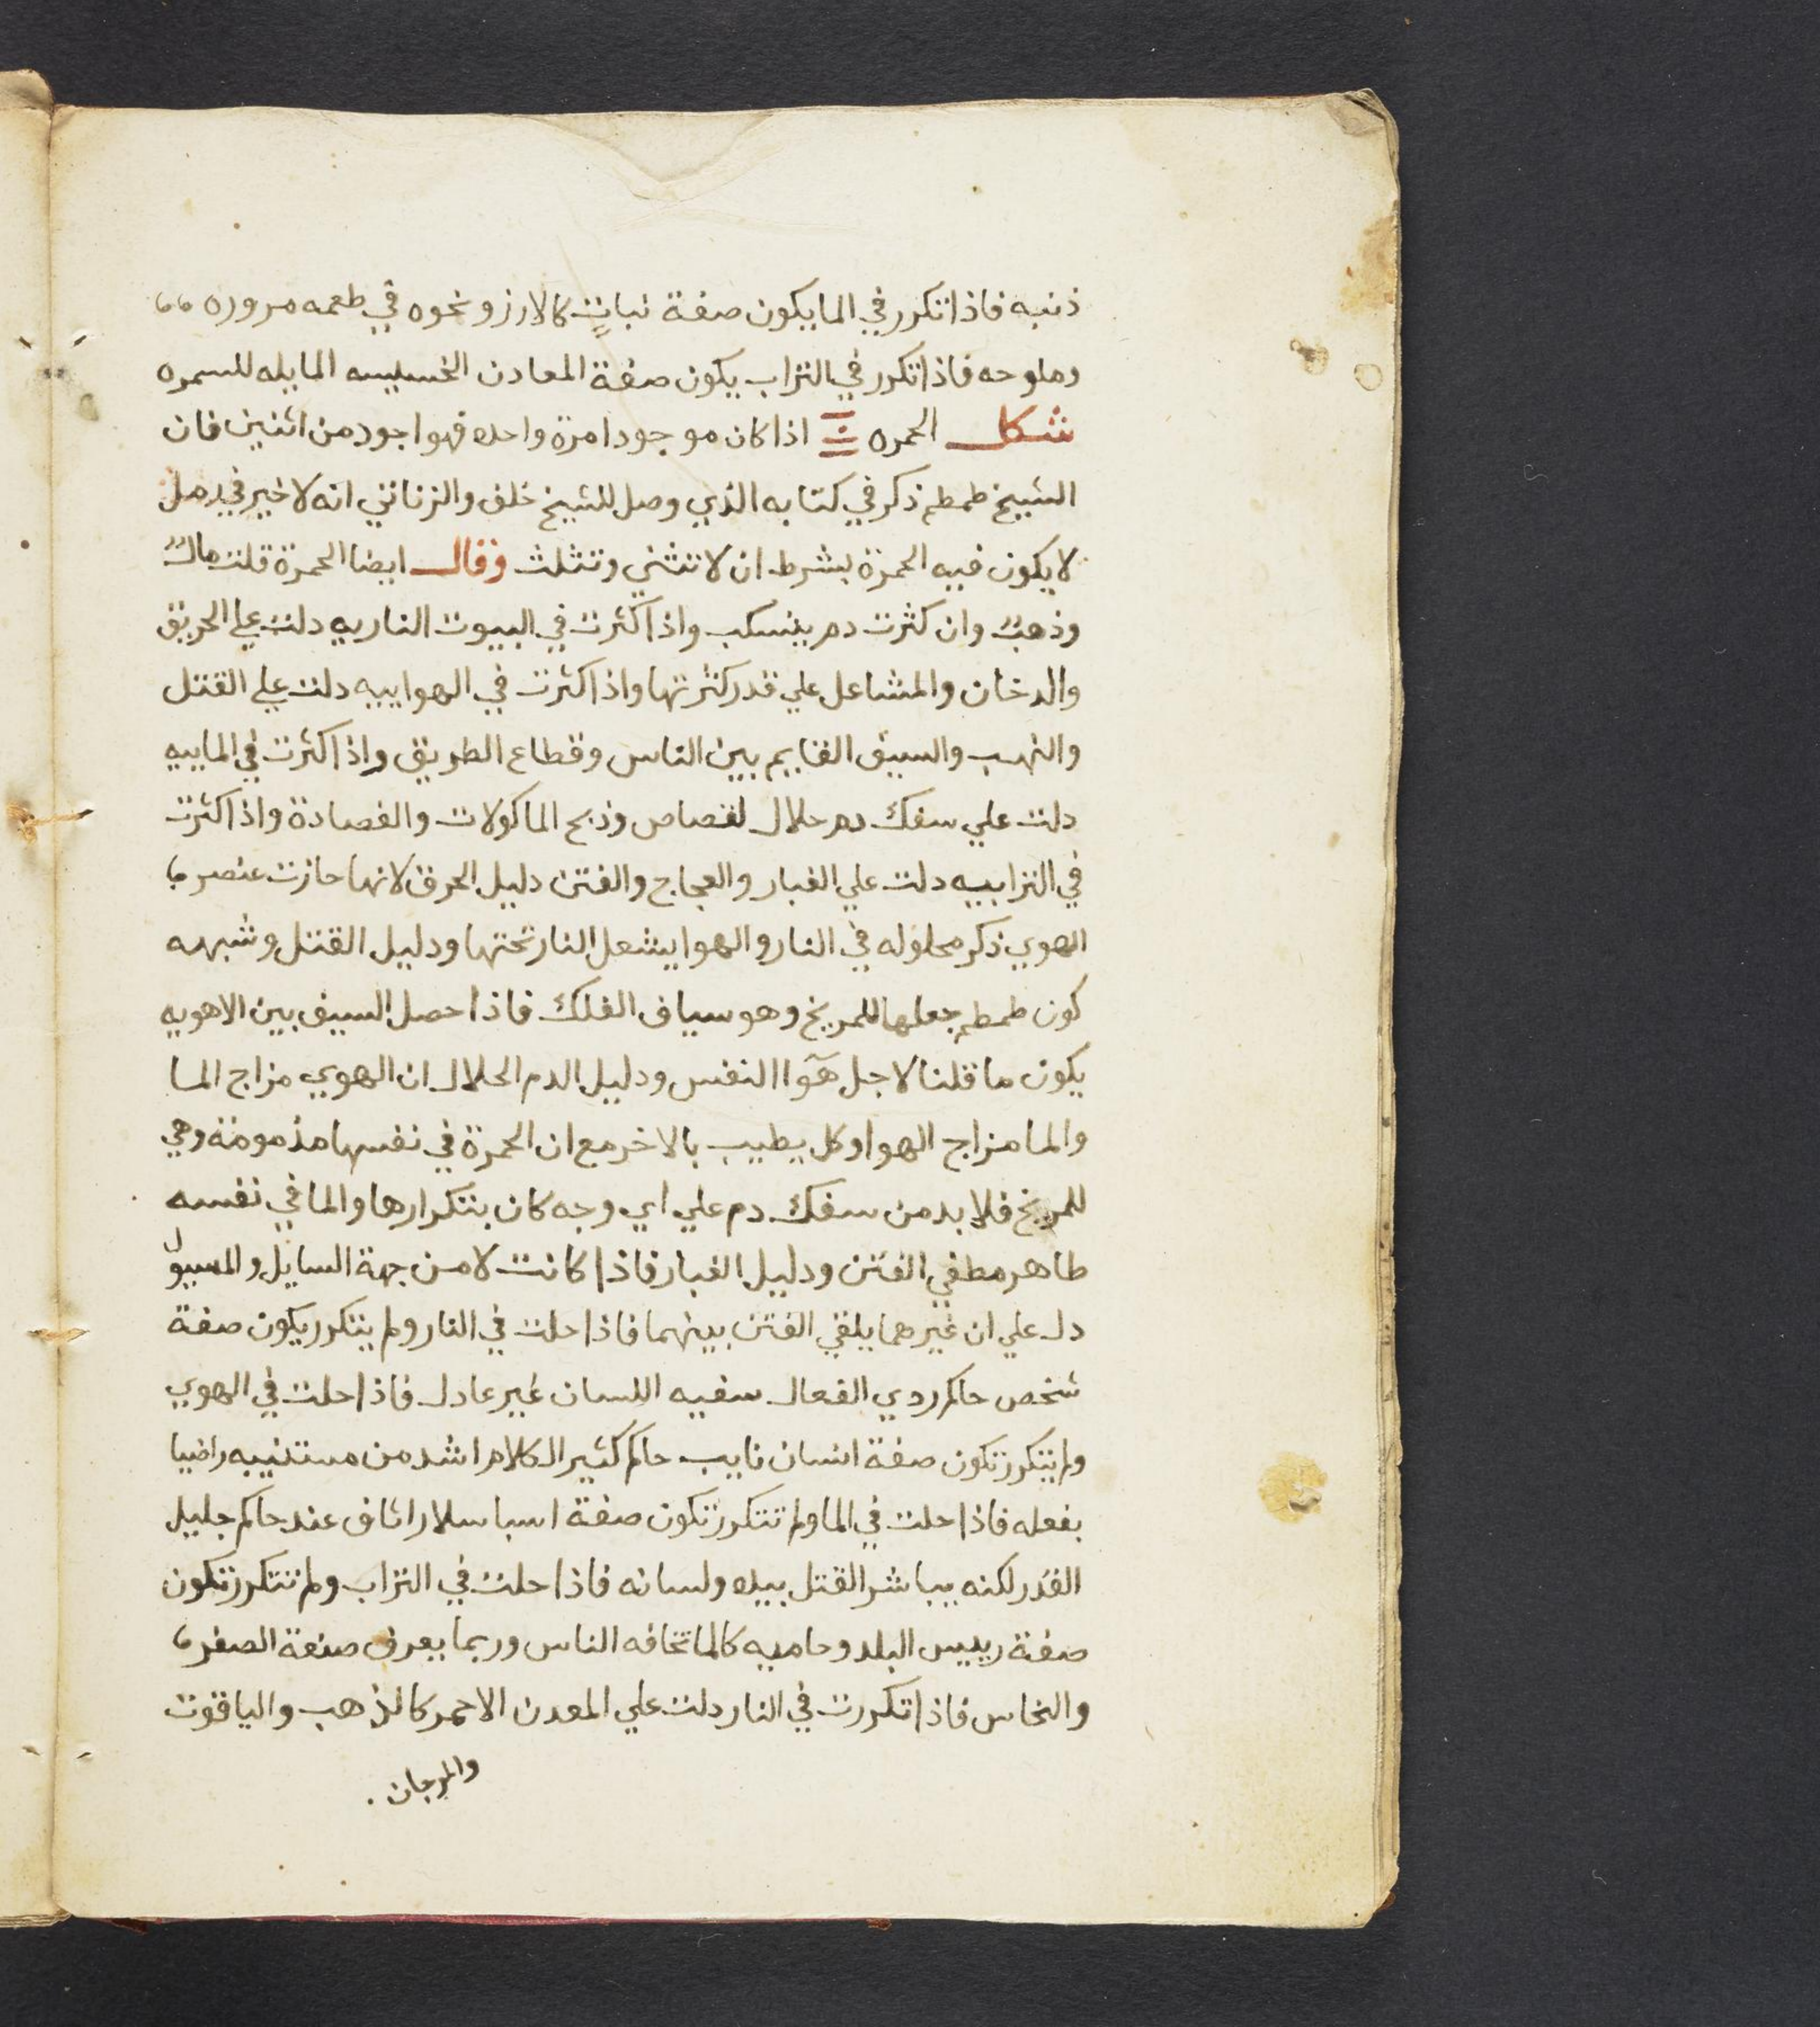 ذنبه فاذا تكرر في الما يكون صفة نبات كالارز ونحوه في طعمه مروره
وملوحه فاذا تكرر في التراب يكون صفة المعادن الخسيسه المايله للسمره
شكل الحمره اذا كان موجودا مرة واحده فهو اجود من اثنين فان
الشيخ طمطم ذكر في كتابه الذي وصل للشيخ خلف والزناتي انه لا خير في رمل
لا يكون فيه الحمرة بشرط ان لا تتثني وتثلث وقال ايضا الحمرة قلت مال
وذهب وان كثرت دم ينسكب واذا كثرت في البيوت الناريه دلت علي الحريق
والدخان والمشاعل علي قدر كثرتها واذا كثرت في الهواييه دلت علي القتل
والنهب والسيف القايم بين الناس وقطاع الطريق واذا كثرت في الماييه
دلت علي سفك دم حلال لقصاص وذبح الماكولات والفصادة واذا كثرت
في الترابيه دلت علي الغبار والعجاج والفتن دليل الحرق لانها حازت عنصر
الهوي ذكر محلوله في النار والهوا يشعل النار تحتها ودليل القتل وشبهه
كون طمطم جعلها للمريخ وهو سياف الفلك فاذا حصل السيف بين الاهويه
يكون ما قلنا لاجل هوا النفس ودليل الدم الحلال ان الهوي مزاج الما
والما مزاج الهوا وكل يطيب بالاخر مع ان الحمرة في نفسها مذمومة وهي
للمريخ فلا بد من سفك دم علي اي وجه كان بتكرارها والما في نفسه
طاهر مطفي الفتن ودليل الغبار فاذا كانت لا من جهة السايل والمسيول
دل علي ان غيرهما يلقي الفتن بينهما فاذا حلت في النار ولم يتكرر يكون صفة
شخص حاكم ردي الفعال سفيه اللسان غير عادل فاذا حلت في الهوي
ولم يتكرر تكون صفة انسان نايب حاكم كثير الكلام اشد من مستنيبه راضيا
بفعله فاذا حلت في الما ولم تتكرر تكون صفة اسباسلار عند حاكم جليل
القدر لكنه يباشر القتل بيده ولسانه فاذا حلت في التراب ولم تتكرر تكون
صفة رييس البلد وحاميه كالما تخافه الناس وربما يعرف صنعة الصفر
والنحاس فاذا تكررت في النار دلت علي المعدن الاحمر كالذهب والياقوت
والمرجان